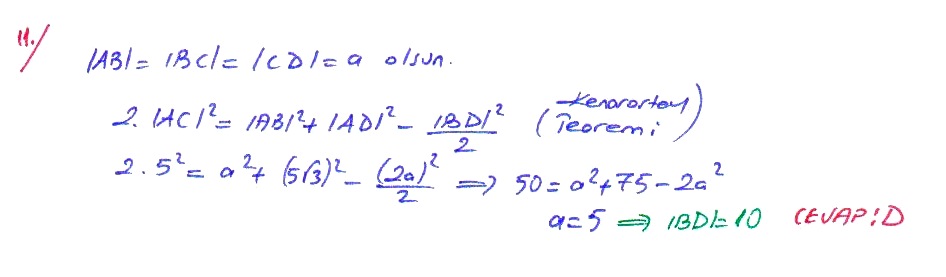 11./
|AB| = |BC| = |CD| = a olsun.
2. |AC|² = |AB|² + |AD|² - |BD|²/2 (Kenarortay Teoremi)
2. 5² = a² + (5√3)² - (2a)²/2 ⇒ 50 = a² + 75 - 2a²
a = 5 ⇒ |BD| = 10 CEVAP: D